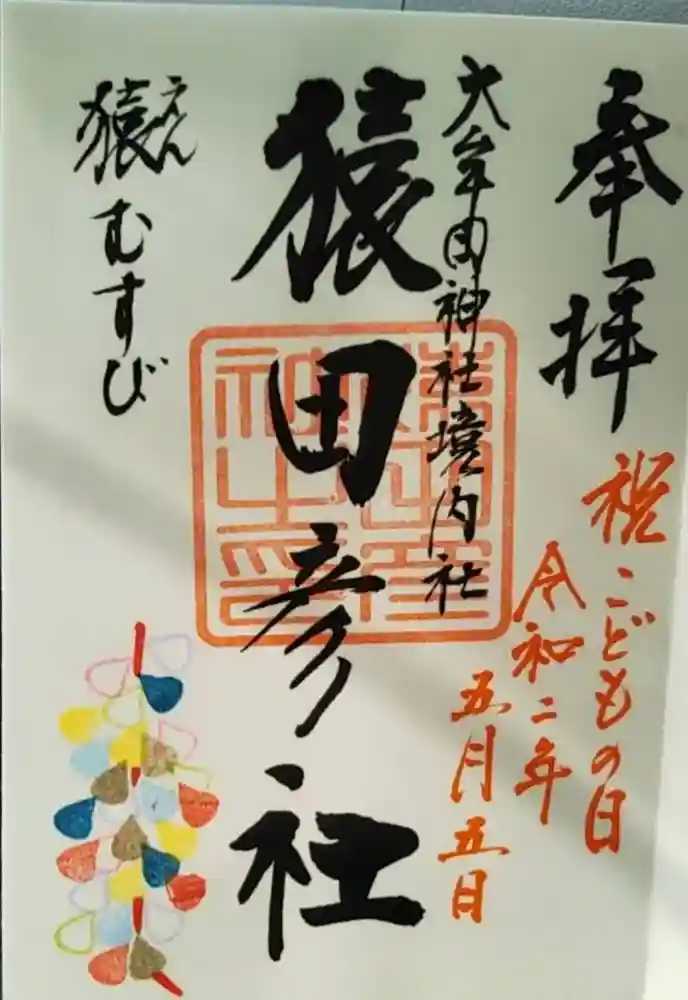 奉拝
祝こどもの日
令和二年
五月五日
大牟田神社境内社
猿田彦社
猿えん
むすび